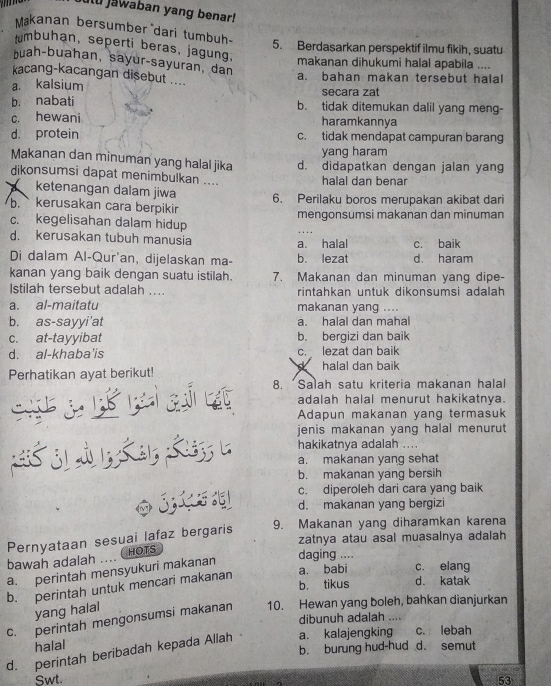 jawaban yang benar!
Makanan bersumber dari tumbuh-
tumbuhan, seperti beras, jagung,
buah-buahan, sayur-sayuran, dan
kacang-kacangan disebut ....
a. kalsium
b. nabati
c. hewani
d. protein
Makanan dan minuman yang halal jika
dikonsumsi dapat menimbulkan ....
ketenangan dalam jiwa
b. kerusakan cara berpikir
c. kegelisahan dalam hidup
d. kerusakan tubuh manusia
Di dalam Al-Qur'an, dijelaskan ma-
kanan yang baik dengan suatu istilah.
Istilah tersebut adalah ....
a. al-maitatu
b. as-sayyi'at
c. at-tayyibat
d. al-khaba'is
Perhatikan ayat berikut!
يٰٓاَيُّهَا الَّذِيْنَ اٰمَنُوْا كُلُوْا مِنْ طَيِّبٰتِ
مَا رَزَقْنٰكُمْ وَاشْكُرُوْا لِلّٰهِ اِنْ كُنْتُمْ
اِيَّاهُ تَعْبُدُوْنَ ﴿١٧٢﴾
Pernyataan sesuai lafaz bergaris
bawah adalah .... HOTS
a. perintah mensyukuri makanan
b. perintah untuk mencari makanan
yang halal
c. perintah mengonsumsi makanan
halal
d. perintah beribadah kepada Allah
Swt.
5. Berdasarkan perspektif ilmu fikih, suatu
makanan dihukumi halal apabila ....
a. bahan makan tersebut halal
secara zat
b. tidak ditemukan dalil yang meng-
haramkannya
c. tidak mendapat campuran barang
yang haram
d. didapatkan dengan jalan yang
halal dan benar
6. Perilaku boros merupakan akibat dari
mengonsumsi makanan dan minuman
....
a. halal c. baik
b. lezat d. haram
7. Makanan dan minuman yang dipe-
rintahkan untuk dikonsumsi adalah
makanan yang ....
a. halal dan mahal
b. bergizi dan baik
c. lezat dan baik
d. halal dan baik
8. Salah satu kriteria makanan halal
adalah halal menurut hakikatnya.
Adapun makanan yang termasuk
jenis makanan yang halal menurut
hakikatnya adalah ....
a. makanan yang sehat
b. makanan yang bersih
c. diperoleh dari cara yang baik
d. makanan yang bergizi
9. Makanan yang diharamkan karena
zatnya atau asal muasalnya adalah
daging ....
a. babi c. elang
b. tikus d. katak
10. Hewan yang boleh, bahkan dianjurkan
dibunuh adalah ....
a. kalajengking c. lebah
b. burung hud-hud d. semut
53